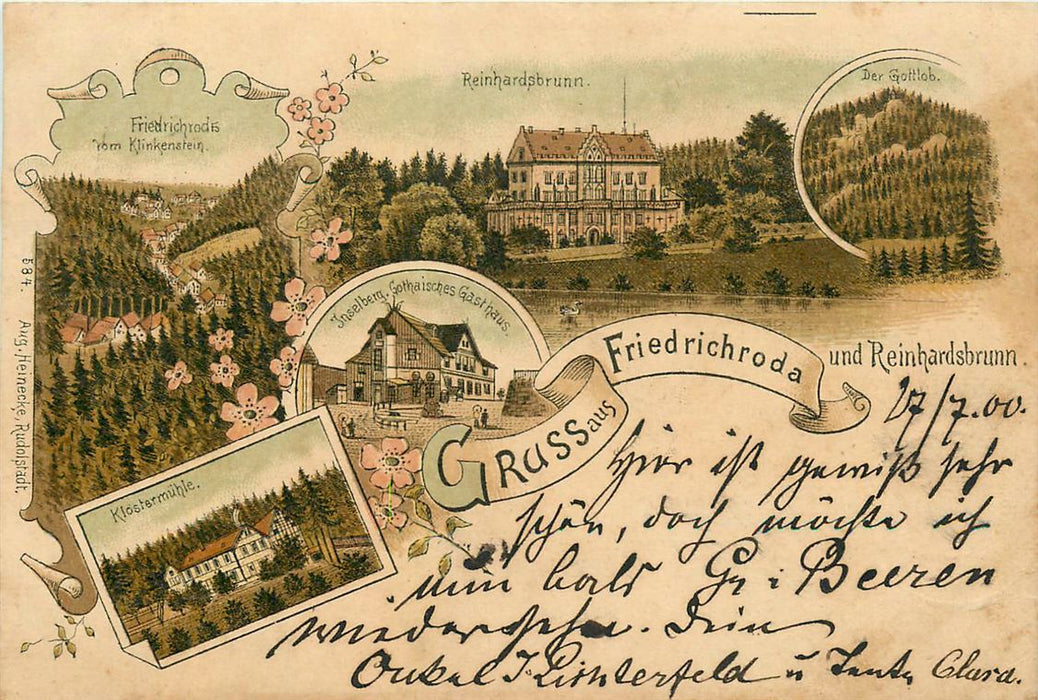 Friedrichroda
vom Klinkenstein.
Reinhardsbrunn.
Der Gottlob.
Inselberg. Gothaisches Gasthaus.
Gruss aus
Friedrichroda
und Reinhardsbrunn.
Klostermühle.
584. Aug. Heinecke, Rudolstadt.
27/7.00.
Hier ist gewiß sehr
schön, doch möchte ich
nun bald Gr i Beeren
wiedersehn. Dein
Onkel J. Lichterfeld u Tante Clara.